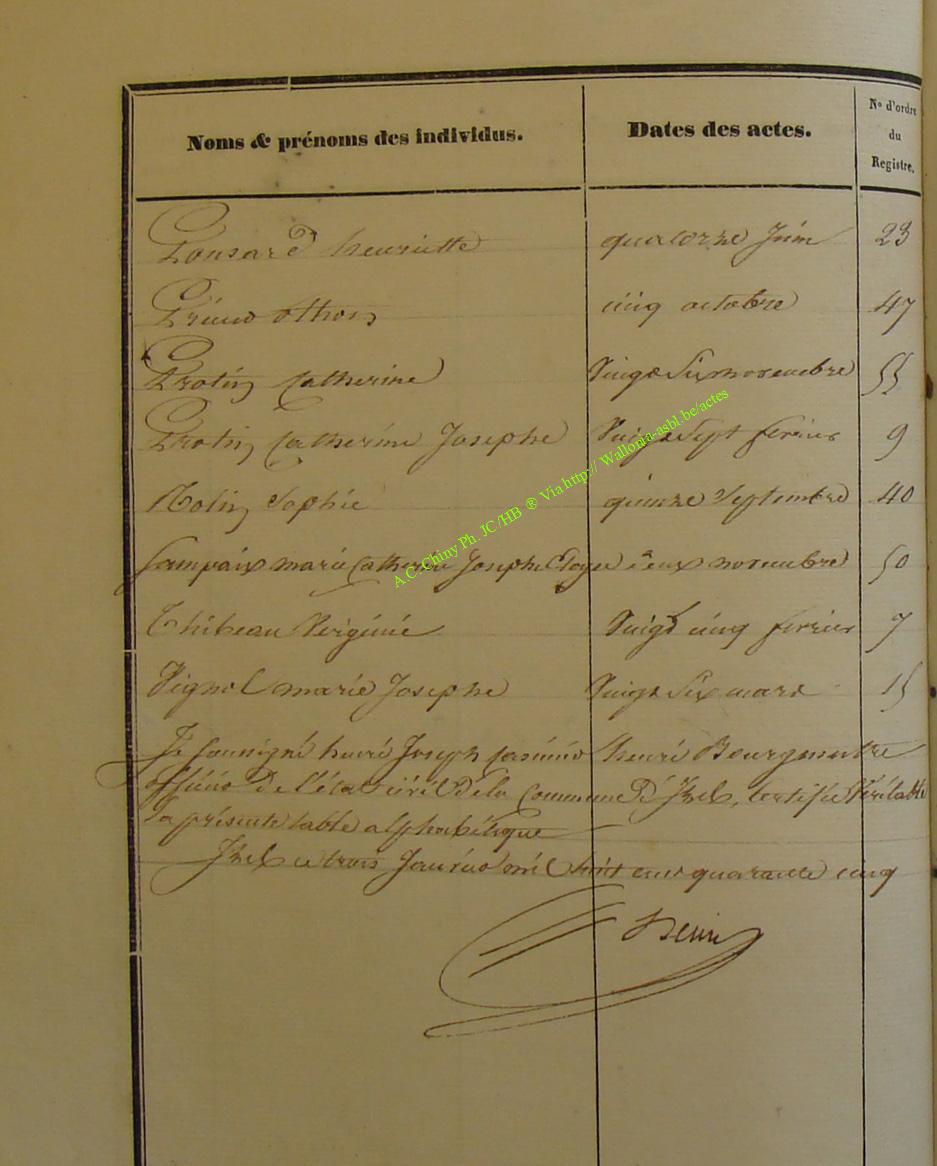 Noms & prénoms des individus. Dates des actes. N° d'ordre du Registre.
Ponsard henriette quatorze Juin 23
othon cinq octobre 47
Protin Catherine Vingt Six novembre 55
Protin Catherine Josephe Vingt Sept fevrier 9
Rolin Sophie quinze Septembre 40
Sampaix marie Catherine Josephe Eloyse deux novembre 50
Thibeau Virginie Vingt cinq fevrier 7
Vignol marie Josephe Vingt Six mars 15
Je Soussigné henri Joseph henri Bourgmestre
officier De l'état civil De la Commune D'Izel, Certifie Véritable
la présente table alphabétique
Izel ce trois Janvier mil huit cent quarante cinq
Henri
A.C. Chiny Ph. JC/HB ® Via http:// Wallonia-asbl.be/actes